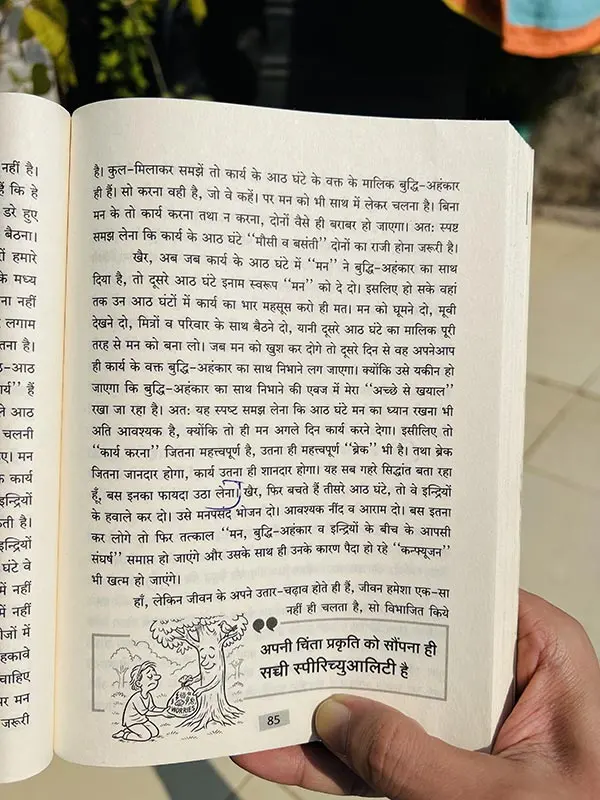 नहीं है।
हैं कि हे
डरे हुए
बैठना।
हमारे
के मध्य
ना नहीं
लगाम
तना है।
ठ-आठ
र्य'' हैं
ले आठ
चलनी
ए। मन
कार्य
इन्द्रियों
ती है।
इन्द्रियों
घंटे वे
में नहीं
में नहीं
जों में
हकावे
चाहिए
पर मन
जरूरी
है। कुल-मिलाकर समझें तो कार्य के आठ घंटे के वक्त के मालिक बुद्धि-अहंकार
ही हैं। सो करना वही है, जो वे कहें। पर मन को भी साथ में लेकर चलना है। बिना
मन के तो कार्य करना तथा न करना, दोनों वैसे ही बराबर हो जाएगा। अत: स्पष्ट
समझ लेना कि कार्य के आठ घंटे ''मौसी व बसंती'' दोनों का राजी होना जरूरी है।
खैर, अब जब कार्य के आठ घंटे में ''मन'' ने बुद्धि-अहंकार का साथ
दिया है, तो दूसरे आठ घंटे इनाम स्वरूप ''मन'' को दे दो। इसलिए हो सके वहां
तक उन आठ घंटों में कार्य का भार महसूस करो ही मत। मन को घूमने दो, मूवी
देखने दो, मित्रों व परिवार के साथ बैठने दो, यानी दूसरे आठ घंटे का मालिक पूरी
तरह से मन को बना लो। जब मन को खुश कर दोगे तो दूसरे दिन से वह अपनेआप
ही कार्य के वक्त बुद्धि-अहंकार का साथ निभाने लग जाएगा। क्योंकि उसे यकीन हो
जाएगा कि बुद्धि-अहंकार का साथ निभाने की एवज में मेरा ''अच्छे से खयाल''
रखा जा रहा है। अत: यह स्पष्ट समझ लेना कि आठ घंटे मन का ध्यान रखना भी
अति आवश्यक है, क्योंकि तो ही मन अगले दिन कार्य करने देगा। इसीलिए तो
''कार्य करना'' जितना महत्त्वपूर्ण है, उतना ही महत्त्वपूर्ण ''ब्रेक'' भी है। तथा ब्रेक
जितना जानदार होगा, कार्य उतना ही शानदार होगा। यह सब गहरे सिद्धांत बता रहा
हूँ, बस इनका फायदा उठा लेना। खैर, फिर बचते हैं तीसरे आठ घंटे, तो वे इन्द्रियों
के हवाले कर दो। उसे मनपसंद भोजन दो। आवश्यक नींद व आराम दो। बस इतना
कर लोगे तो फिर तत्काल ''मन, बुद्धि-अहंकार व इन्द्रियों के बीच के आपसी
संघर्ष'' समाप्त हो जाएंगे और उसके साथ ही उनके कारण पैदा हो रहे ''कन्फ्यूजन''
भी खत्म हो जाएंगे।
हाँ, लेकिन जीवन के अपने उतार-चढ़ाव होते ही हैं, जीवन हमेशा एक-सा
नहीं ही चलता है, सो विभाजित किये
अपनी चिंता प्रकृति को सौंपना ही
सच्ची स्पीरिच्युआलिटी है
WORRIES
85